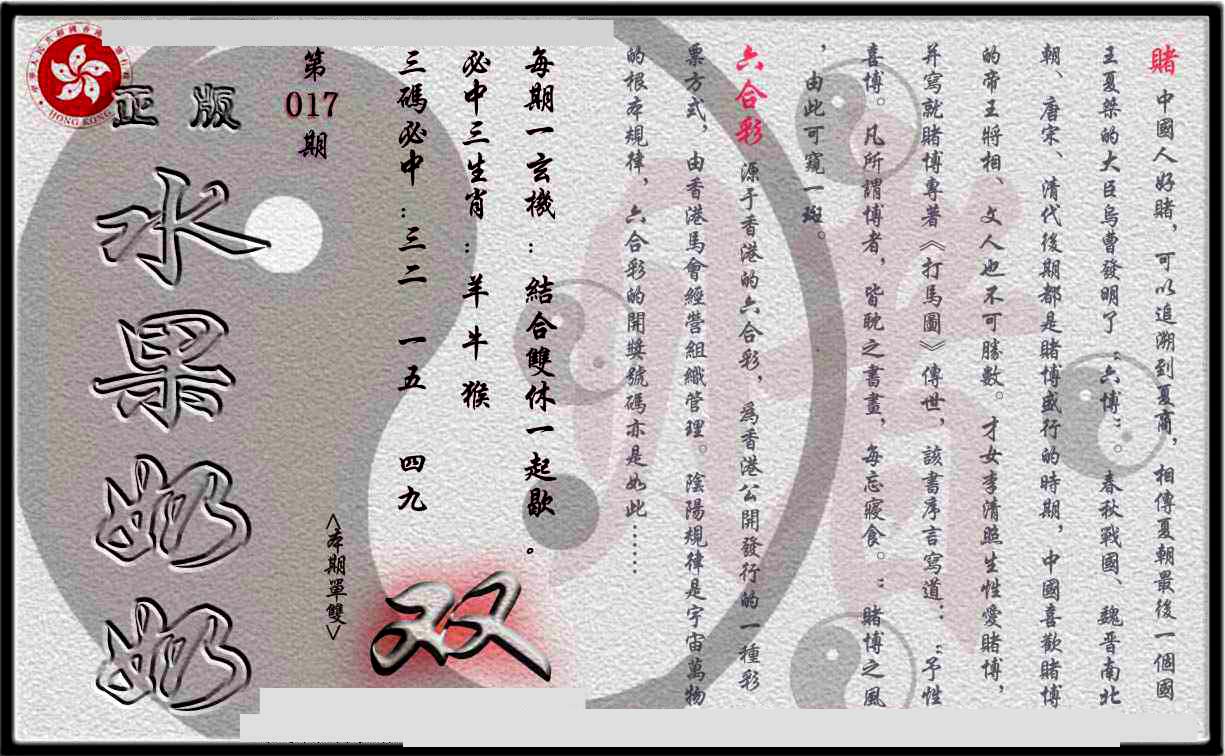 賭 中國人好賭，可以追溯到夏商，相傳夏朝最後一個國
王夏桀的大臣烏曹發明了“六博”。春秋戰國、魏晋南北
朝、唐宋、清代後期都是賭博盛行的時期，中國喜歡賭博
的帝王將相、文人也不可勝數。才女李清照生性愛賭博，
并寫就賭博專著《打馬圖》傳世，該書序言寫道：“予性
喜博。凡所謂博者，皆耽之書畫，每忘寢食。”賭博之風
，由此可窺一斑。
六合彩 源于香港的六合彩，為香港公開發行的一種彩
票方式，由香港馬會經營組織管理。陰陽規律是宇宙萬物
的根本規律，六合彩的開獎號碼亦是如此……
每期一玄機：結合雙休一起歇。
必中三生肖：羊牛猴
三碼必中：三二 一五 四九
双
<本期單雙>
第
017
期
正版
水果奶奶
HONG KONG